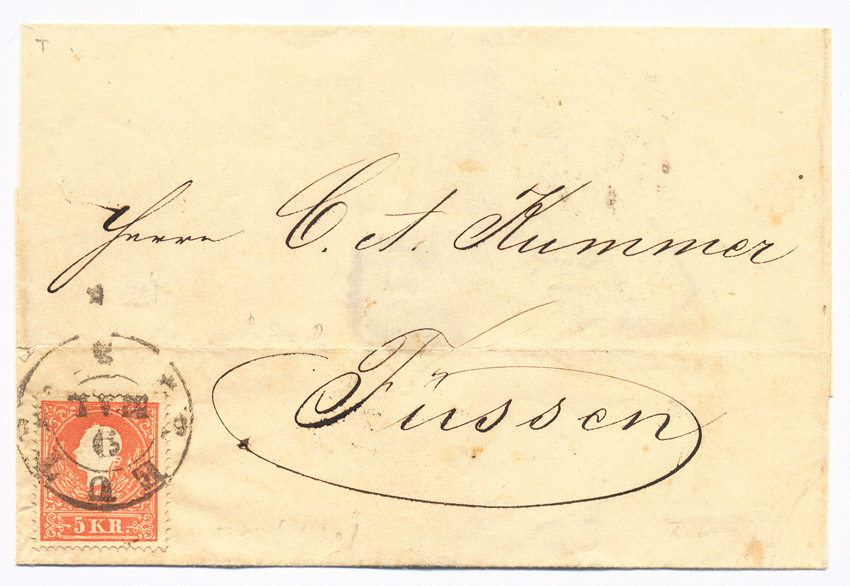 Herrn C. A. Kummer
Füssen
5 KR.